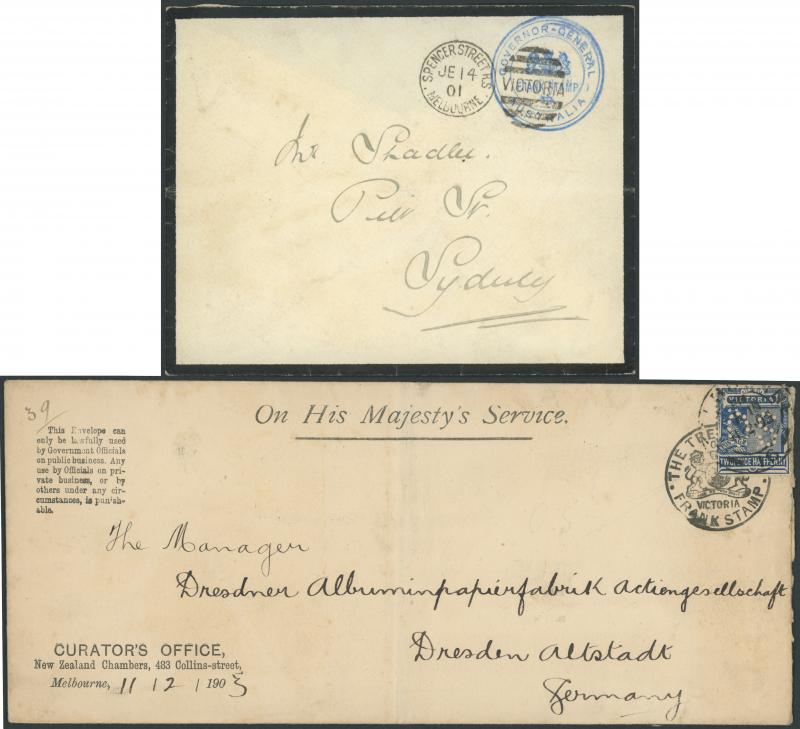 SPENCER STREET R.S
JE 14
01
MELBOURNE
GOVERNOR-GENERAL
FRANK STAMP
AUSTRALIA
VICTORIA
Mr Shadler.
Pitt St.
Sydney
39
On His Majesty's Service.
This Envelope can
only be lawfully used
by Government Officials
on public business. Any
use by Officials on pri-
vate business, or by
others under any cir-
cumstances, is punish-
able.
VICTORIA
TWOPENCE HALFPENNY
THE TRE
VICTORIA
FRANK STAMP
The Manager
Dresdner Albuminpapierfabrik Actiengesellschaft
Dresden Altstadt
Germany
CURATOR'S OFFICE,
New Zealand Chambers, 483 Collins-street,
Melbourne, 11 12 1903